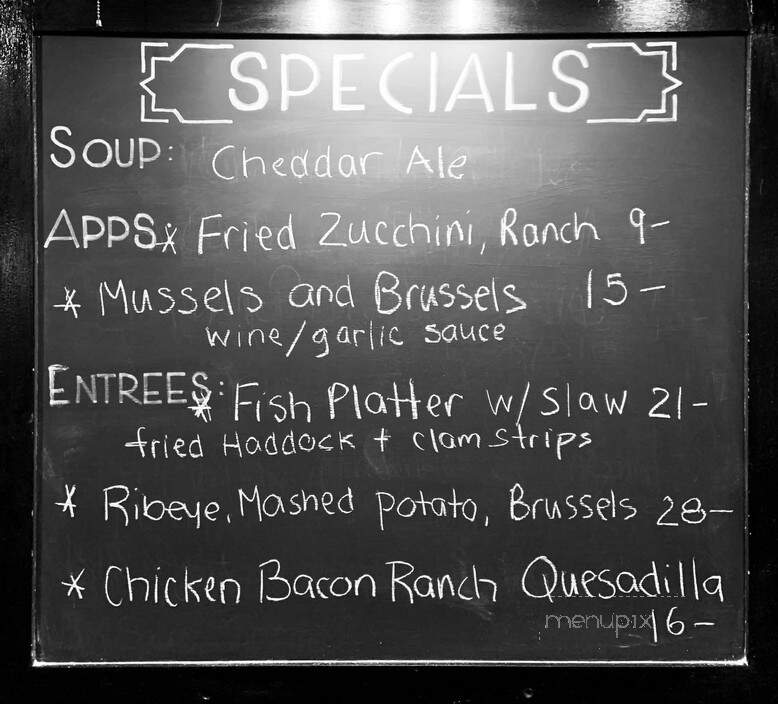 SPECIALS
SOUP: Cheddar Ale
APPS* Fried Zucchini, Ranch 9-
* Mussels and Brussels 15-
wine/garlic sauce
ENTREES: * Fish Platter w/ Slaw 21-
fried Haddock + clam strips
* Ribeye, Mashed potato, Brussels 28-
* Chicken Bacon Ranch Quesadilla
menupix 16-